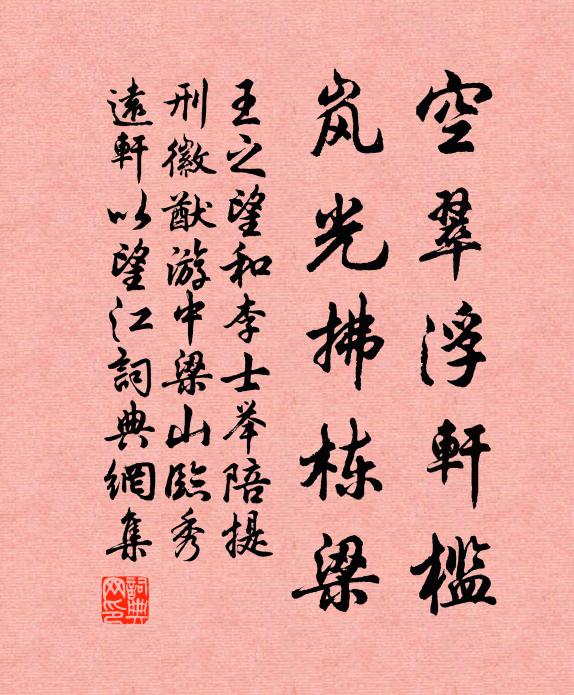 空翠浮軒檻
岚光拂栋梁
王之望和李士举陪提
刑徽猷游中梁山臨秀
遠軒以望江詞典網集
詞典网印